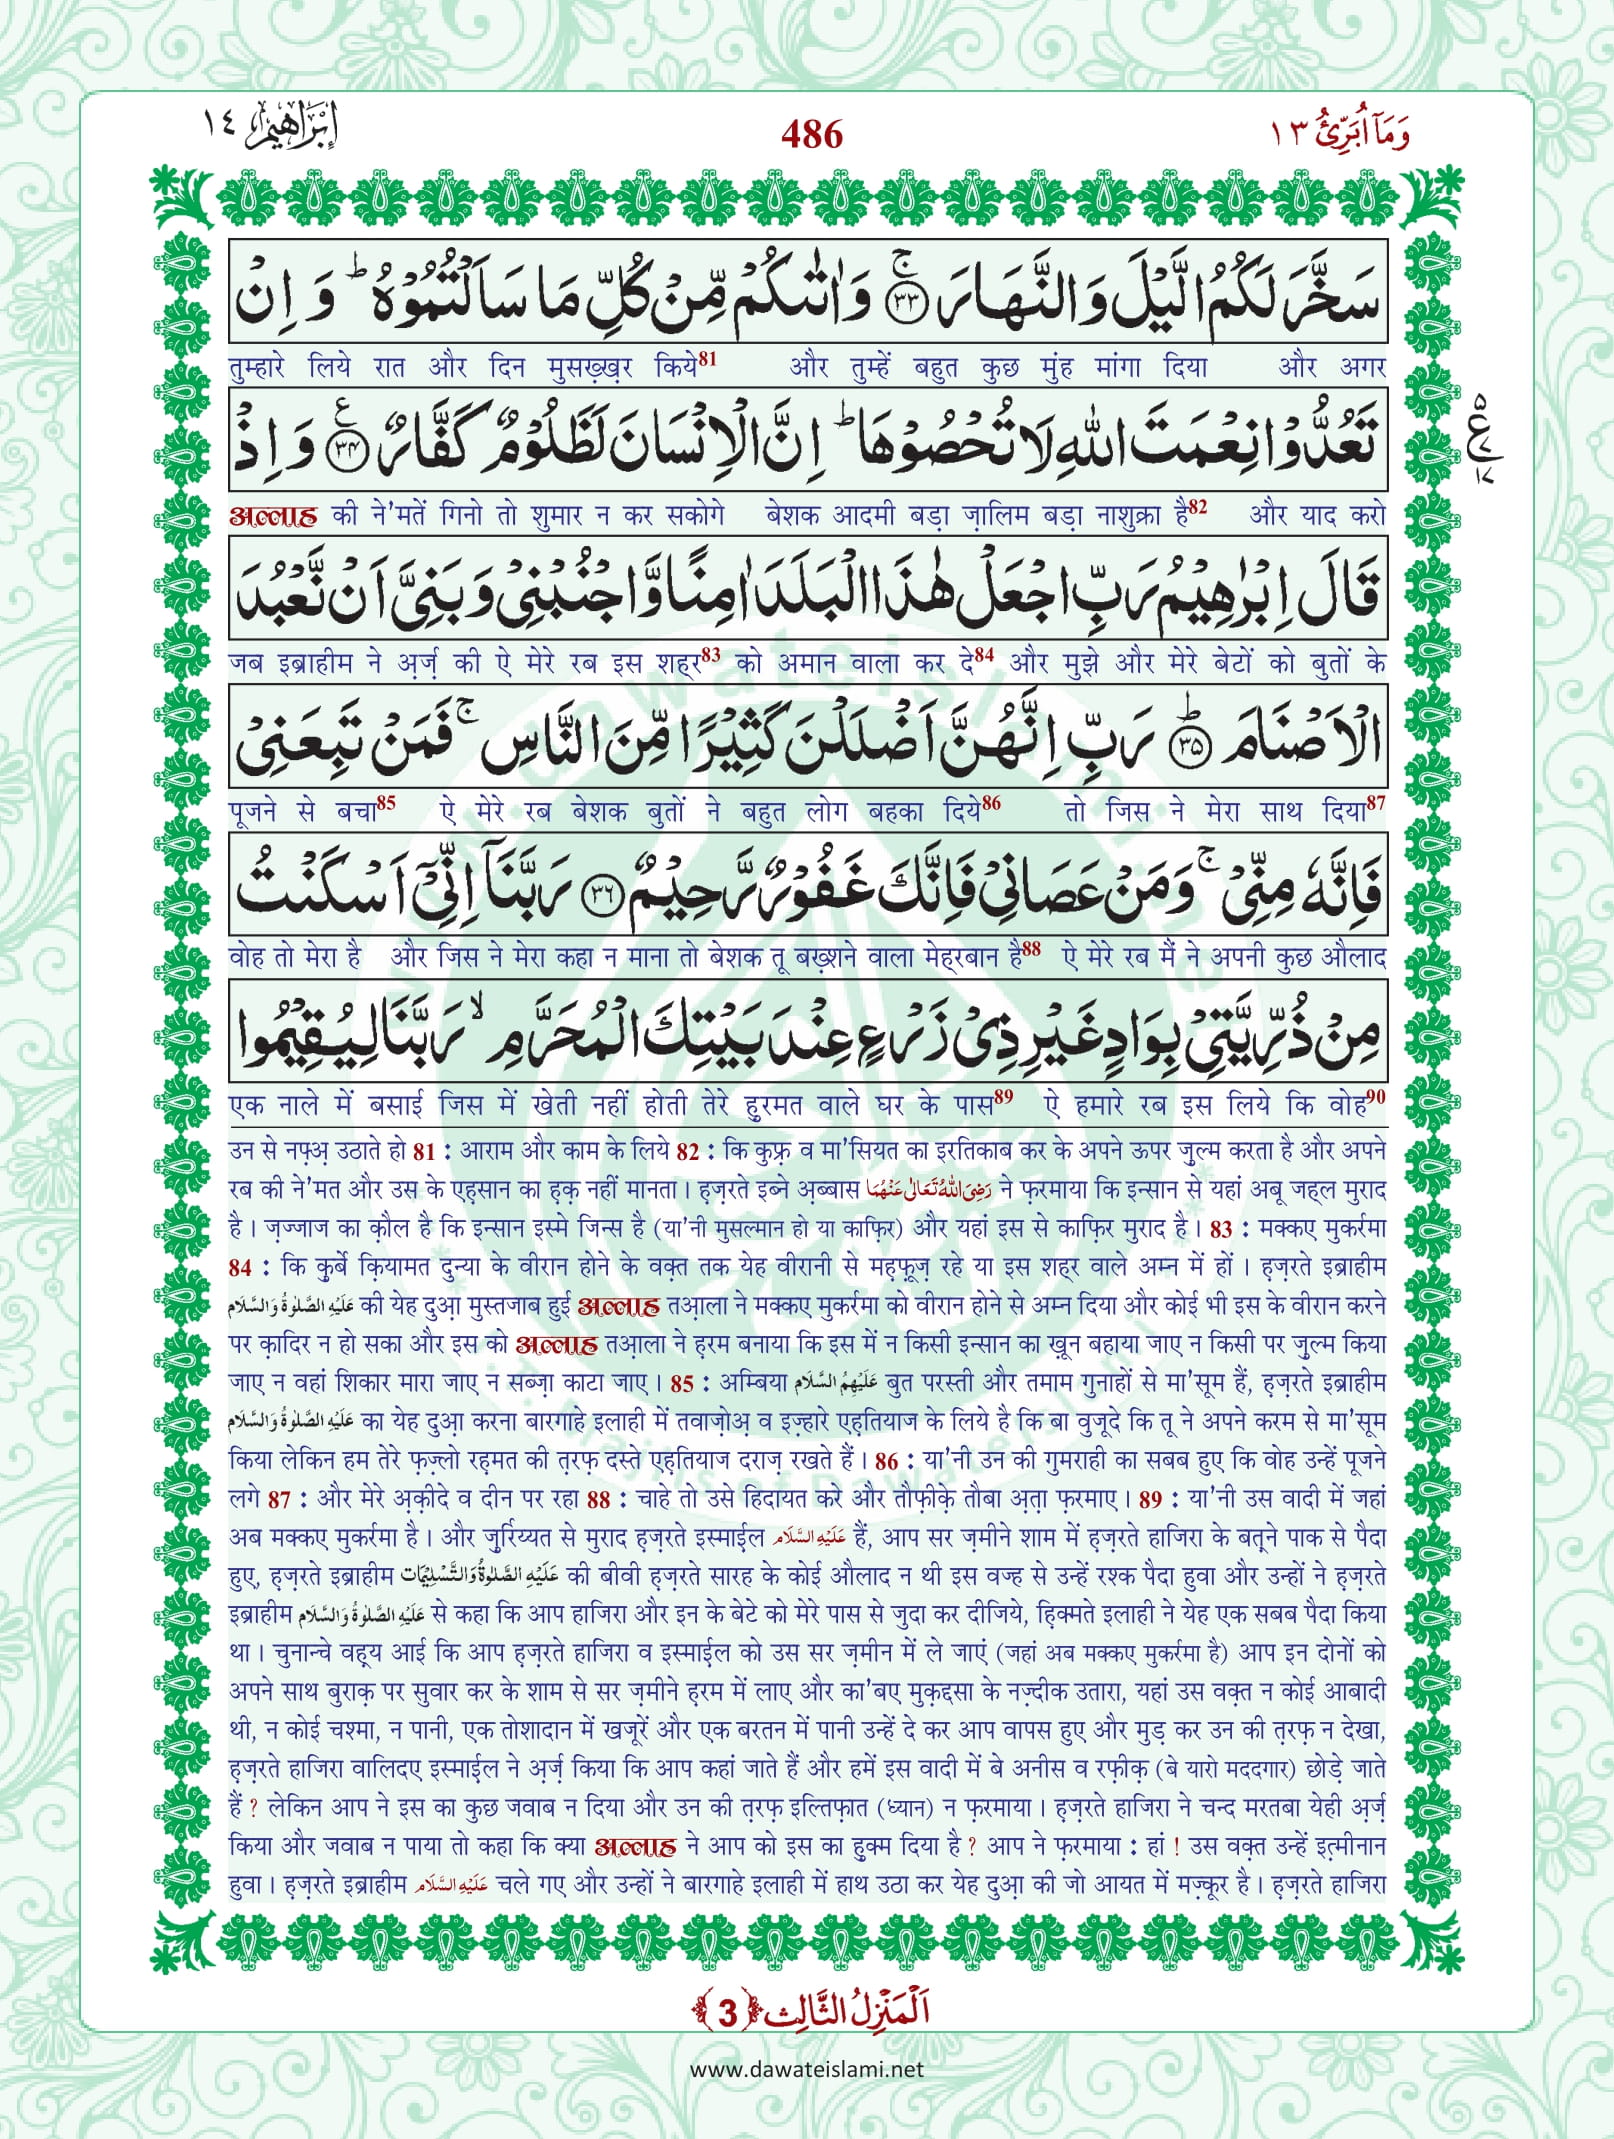 وَمَآ اُبَرِّئُ ١٣
486
اِبْرَاهِيْم ١٤
سَخَّرَ لَكُمُ الَّيْلَ وَالنَّهَارَ ۚ﴿۳۳﴾ وَاٰتٰىكُمْ مِّنْ كُلِّ مَا سَاَلْتُمُوْهُ ؕ وَ اِنْ
तुम्हारे लिये रात और दिन मुसख़्ख़र किये81 और तुम्हें बहुत कुछ मुंह मांगा दिया और अगर
تَعُدُّوْا نِعْمَتَ اللّٰهِ لَا تُحْصُوْهَا ؕ اِنَّ الْاِنْسَانَ لَظَلُوْمٌ كَفَّارٌ ﴿۳۴﴾ ع وَ اِذْ
ع ٥ ٧ ١٧
अल्लाह की ने'मतें गिनो तो शुमार न कर सकोगे बेशक आदमी बड़ा ज़ालिम बड़ा नाशुक्रा है82 और याद करो
قَالَ اِبْرٰهِيْمُ رَبِّ اجْعَلْ هٰذَا الْبَلَدَ اٰمِنًا وَّ اجْنُبْنِيْ وَ بَنِيَّ اَنْ نَّعْبُدَ
जब इब्राहीम ने अ़र्ज़ की ऐ मेरे रब इस शहर83 को अमान वाला कर दे84 और मुझे और मेरे बेटों को बुतों के
الْاَصْنَامَ ﴿۳۵﴾ؕ رَبِّ اِنَّهُنَّ اَضْلَلْنَ كَثِيْرًا مِّنَ النَّاسِ ۚ فَمَنْ تَبِعَنِيْ
पूजने से बचा85 ऐ मेरे रब बेशक बुतों ने बहुत लोग बहका दिये86 तो जिस ने मेरा साथ दिया87
فَاِنَّهٗ مِنِّيْ ۚ وَمَنْ عَصَانِيْ فَاِنَّكَ غَفُوْرٌ رَّحِيْمٌ ﴿۳۶﴾ رَبَّنَآ اِنِّيْٓ اَسْكَنْتُ
वोह तो मेरा है और जिस ने मेरा कहा न माना तो बेशक तू बख़्शने वाला मेह्रबान है88 ऐ मेरे रब मैं ने अपनी कुछ औलाद
مِنْ ذُرِّيَّتِيْ بِوَادٍ غَيْرِ ذِيْ زَرْعٍ عِنْدَ بَيْتِكَ الْمُحَرَّمِ ۙ رَبَّنَا لِيُقِيْمُوا
एक नाले में बसाई जिस में खेती नहीं होती तेरे हुरमत वाले घर के पास89 ऐ हमारे रब इस लिये कि वोह90
उन से नफ़्अ़ उठाते हो 81 : आराम और काम के लिये 82 : कि कुफ़्र व मा'सियत का इरतिकाब कर के अपने ऊपर ज़ुल्म करता है और अपने
रब की ने'मत और उस के एह़सान का ह़क़ नहीं मानता । ह़ज़रते इब्ने अ़ब्बास رَضِىَ اللّٰهُ تَعَالٰى عَنْهُمَا ने फ़रमाया कि इन्सान से यहां अबू जह्ल मुराद
है । ज़ज्जाज का क़ौल है कि इन्सान इस्मे जिन्स है (या'नी मुसल्मान हो या काफ़िर) और यहां इस से काफ़िर मुराद है । 83 : मक्कए मुकर्रमा
84 : कि कुर्बे क़ियामत दुन्या के वीरान होने के वक़्त तक येह वीरानी से मह़फ़ूज़ रहे या इस शहर वाले अम्न में हों । ह़ज़रते इब्राहीम
عَلَيْهِ الصَّلٰوةُ وَالسَّلَام की येह दुआ़ मुस्तजाब हुई अल्लाह तआ़ला ने मक्कए मुकर्रमा को वीरान होने से अम्न दिया और कोई भी इस के वीरान करने
पर क़ादिर न हो सका और इस को अल्लाह तआ़ला ने ह़रम बनाया कि इस में न किसी इन्सान का ख़ून बहाया जाए न किसी पर ज़ुल्म किया
जाए न वहां शिकार मारा जाए न सब्ज़ा काटा जाए । 85 : अम्बिया عَلَيْهِمُ السَّلَام बुत परस्ती और तमाम गुनाहों से मा'सूम हैं, ह़ज़रते इब्राहीम
عَلَيْهِ الصَّلٰوةُ وَالسَّلَام का येह दुआ़ करना बारगाहे इलाही में तवाज़ोअ़ व इज़्हारे एह़तियाज के लिये है कि बा वुजूदे कि तू ने अपने करम से मा'सूम
किया लेकिन हम तेरे फ़ज़्लो रह़मत की त़रफ़ दस्ते एह़तियाज दराज़ रखते हैं । 86 : या'नी उन की गुमराही का सबब हुए कि वोह उन्हें पूजने
लगे 87 : और मेरे अ़क़ीदे व दीन पर रहा 88 : चाहे तो उसे हिदायत करे और तौफ़ीक़े तौबा अ़त़ा फ़रमाए । 89 : या'नी उस वादी में जहां
अब मक्कए मुकर्रमा है । और ज़ुर्रिय्यत से मुराद ह़ज़रते इस्माईल عَلَيْهِ السَّلَام हैं, आप सर ज़मीने शाम में ह़ज़रते हाजिरा के बत़्ने पाक से पैदा
हुए, ह़ज़रते इब्राहीम عَلَيْهِ الصَّلٰوةُ وَالتَّسْلِيْمَات की बीवी ह़ज़रते सारह के कोई औलाद न थी इस वज्ह से उन्हें रश्क पैदा हुवा और उन्हों ने ह़ज़रते
इब्राहीम عَلَيْهِ الصَّلٰوةُ وَالسَّلَام से कहा कि आप हाजिरा और इन के बेटे को मेरे पास से जुदा कर दीजिये, ह़िक्मते इलाही ने येह एक सबब पैदा किया
था । चुनान्चे वह़्य आई कि आप ह़ज़रते हाजिरा व इस्माईल को उस सर ज़मीन में ले जाएं (जहां अब मक्कए मुकर्रमा है) आप इन दोनों को
अपने साथ बुराक़ पर सुवार कर के शाम से सर ज़मीने ह़रम में लाए और का'बए मुक़द्दसा के नज़्दीक उतारा, यहां उस वक़्त न कोई आबादी
थी, न कोई चश्मा, न पानी, एक तोशादान में खजूरें और एक बरतन में पानी उन्हें दे कर आप वापस हुए और मुड़ कर उन की त़रफ़ न देखा,
ह़ज़रते हाजिरा वालिदए इस्माईल ने अ़र्ज़ किया कि आप कहां जाते हैं और हमें इस वादी में बे अनीस व रफ़ीक़ (बे यारो मददगार) छोड़े जाते
हैं ? लेकिन आप ने इस का कुछ जवाब न दिया और उन की त़रफ़ इल्तिफ़ात (ध्यान) न फ़रमाया । ह़ज़रते हाजिरा ने चन्द मरतबा येही अ़र्ज़
किया और जवाब न पाया तो कहा कि क्या अल्लाह ने आप को इस का हुक्म दिया है ? आप ने फ़रमाया : हां ! उस वक़्त उन्हें इत़्मीनान
हुवा । ह़ज़रते इब्राहीम عَلَيْهِ السَّلَام चले गए और उन्हों ने बारगाहे इलाही में हाथ उठा कर येह दुआ़ की जो आयत में मज़्कूर है । ह़ज़रते हाजिरा
اَلْمَنْزِلُ الثَّالِث ﴿3﴾
www.dawateislami.net